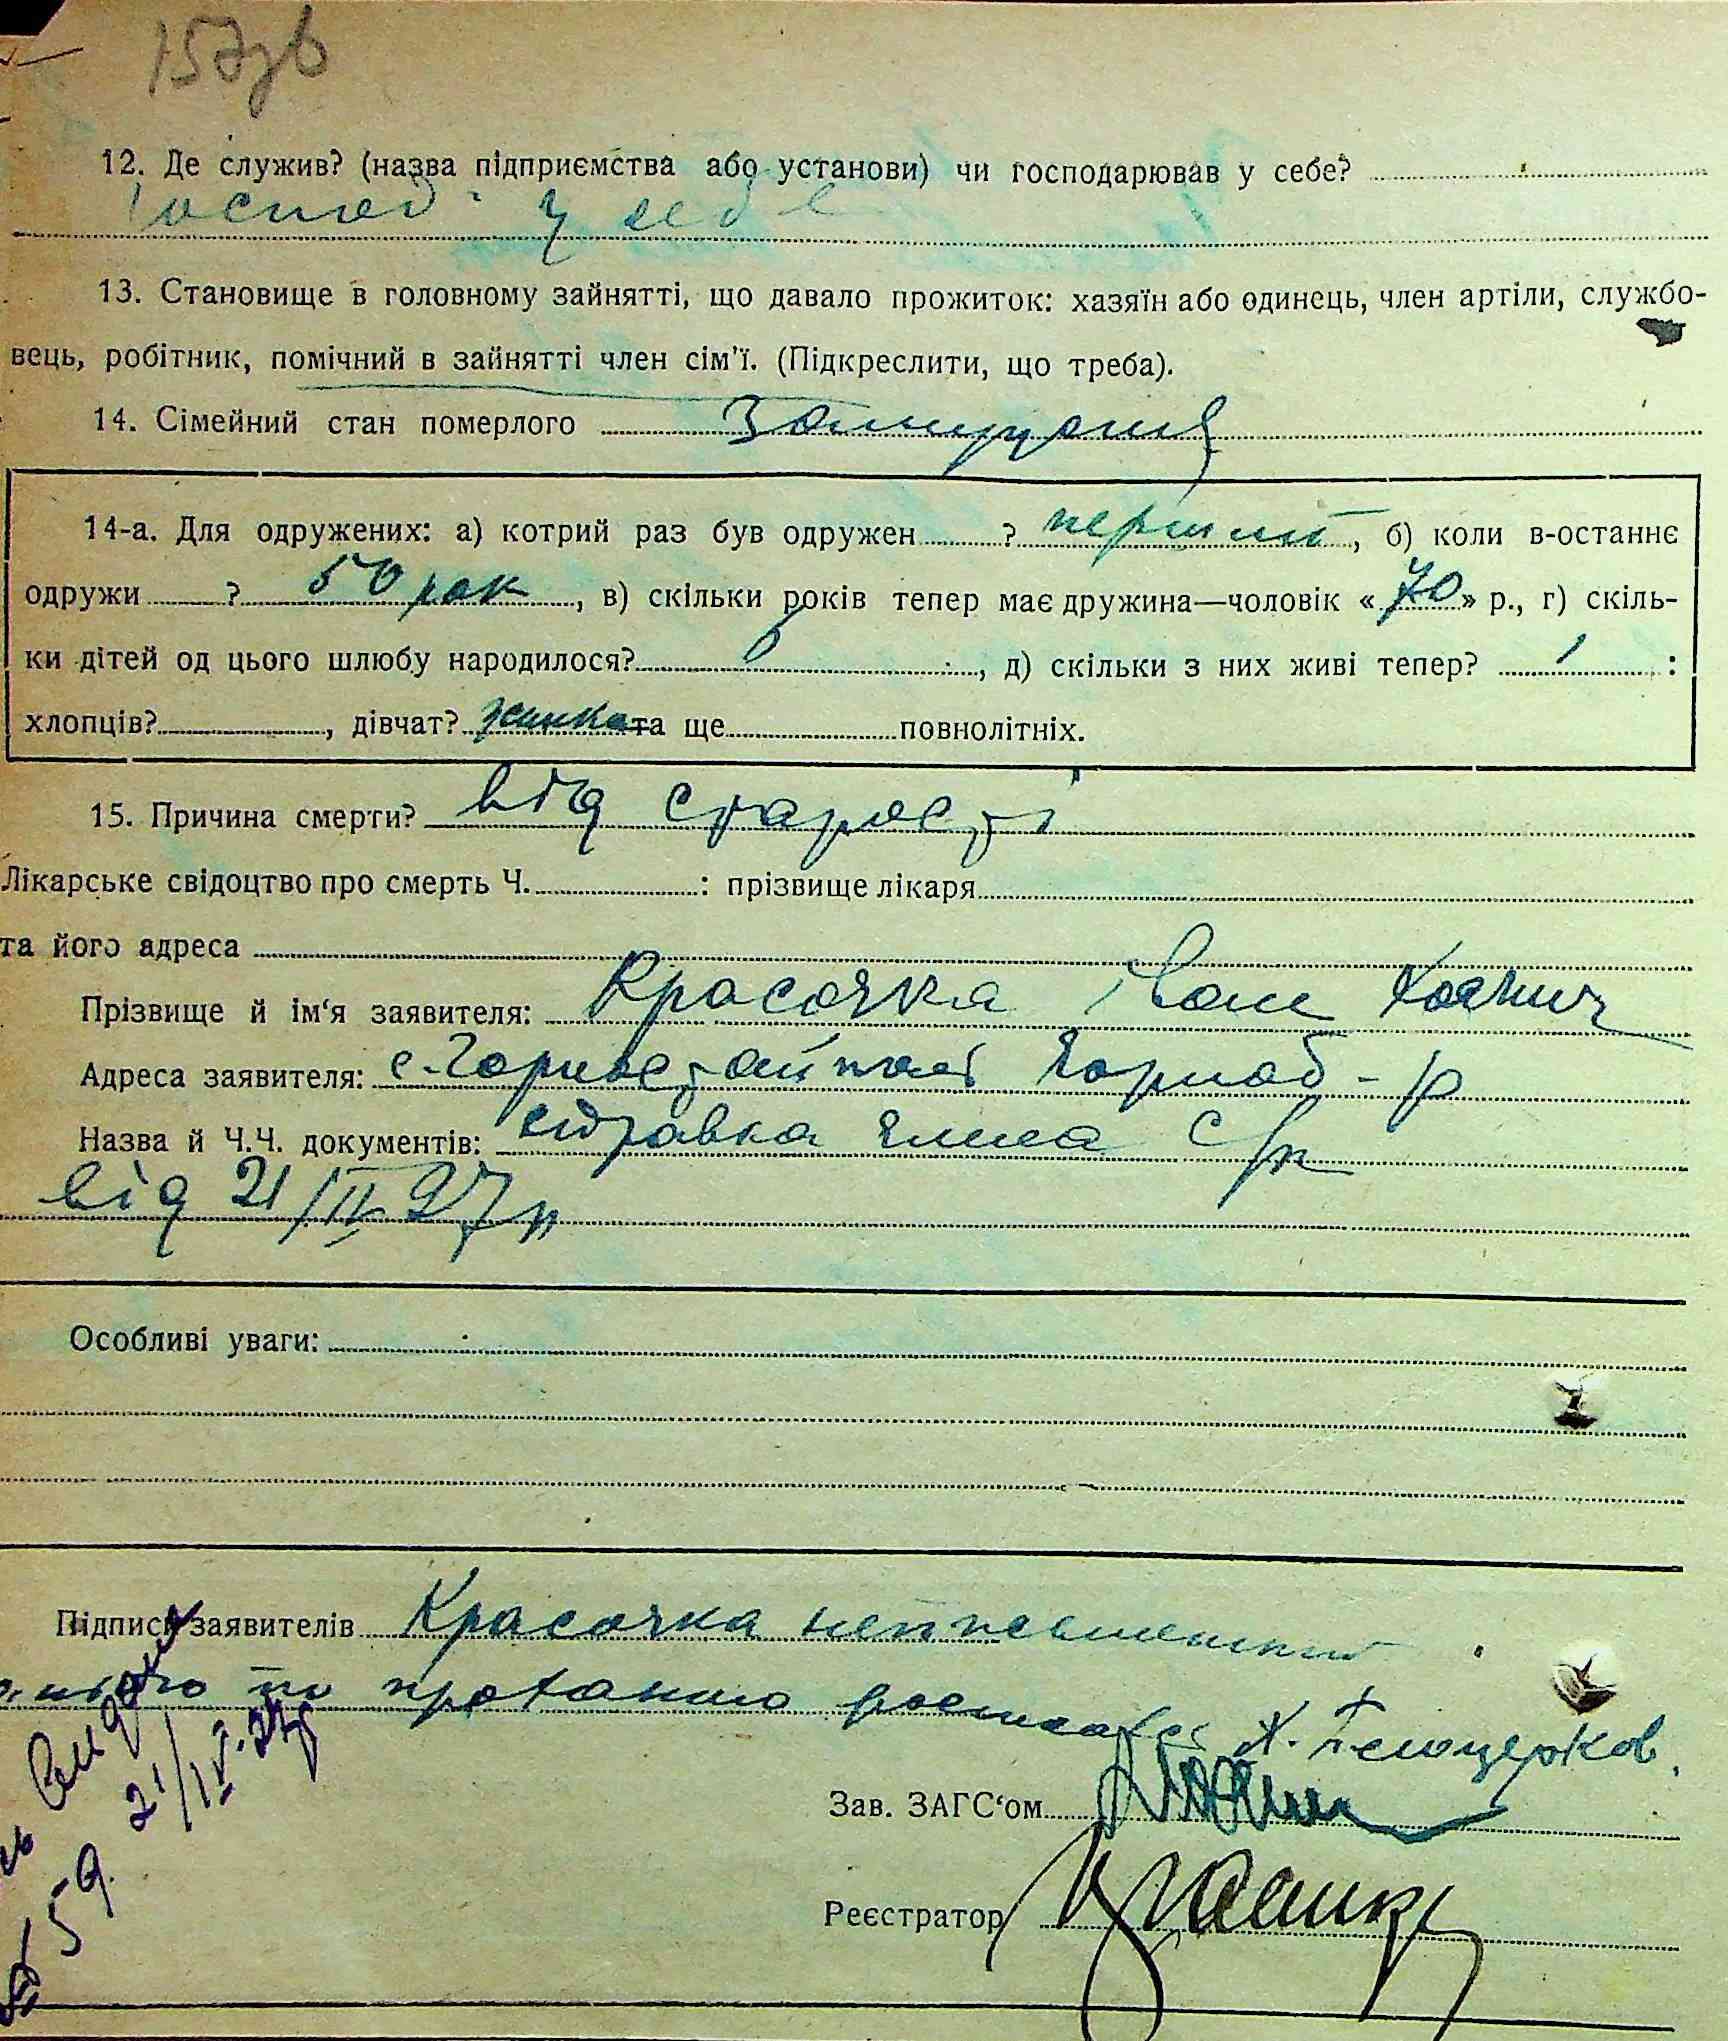 157зв
12. Де служив? (назва підприємства або установи) чи господарював у себе?
Господ. у себе
13. Становище в головному зайнятті, що давало прожиток: хазяїн або одинець, член артіли, службо-
вець, робітник, помічний в зайнятті член сім'ї. (Підкреслити, що треба).
14. Сімейний стан померлого Замужня
14-а. Для одружених: а) котрий раз був одружен ? перший, б) коли в-останнє
одружи ? 50 рок, в) скільки років тепер має дружина—чоловік «70» р., г) скіль-
ки дітей од цього шлюбу народилося?, д) скільки з них живі тепер? 1 :
хлопців?, дівчат? жінка та ще повнолітніх.
15. Причина смерти? від старості
Лікарське свідоцтво про смерть Ч. : прізвище лікаря
та його адреса
Прізвище й ім'я заявителя: Красочка Іван
Адреса заявителя: с. Горностайполь Горност. р
Назва й Ч.Ч. документів: справка С/р
від 21/IV 27 р
Особливі уваги:
Підписи заявителів Красочка неписьменний
по проханню росписався Білоцерков.
Зав. ЗАГС'ом
21/IV-27р
Реєстратор
59